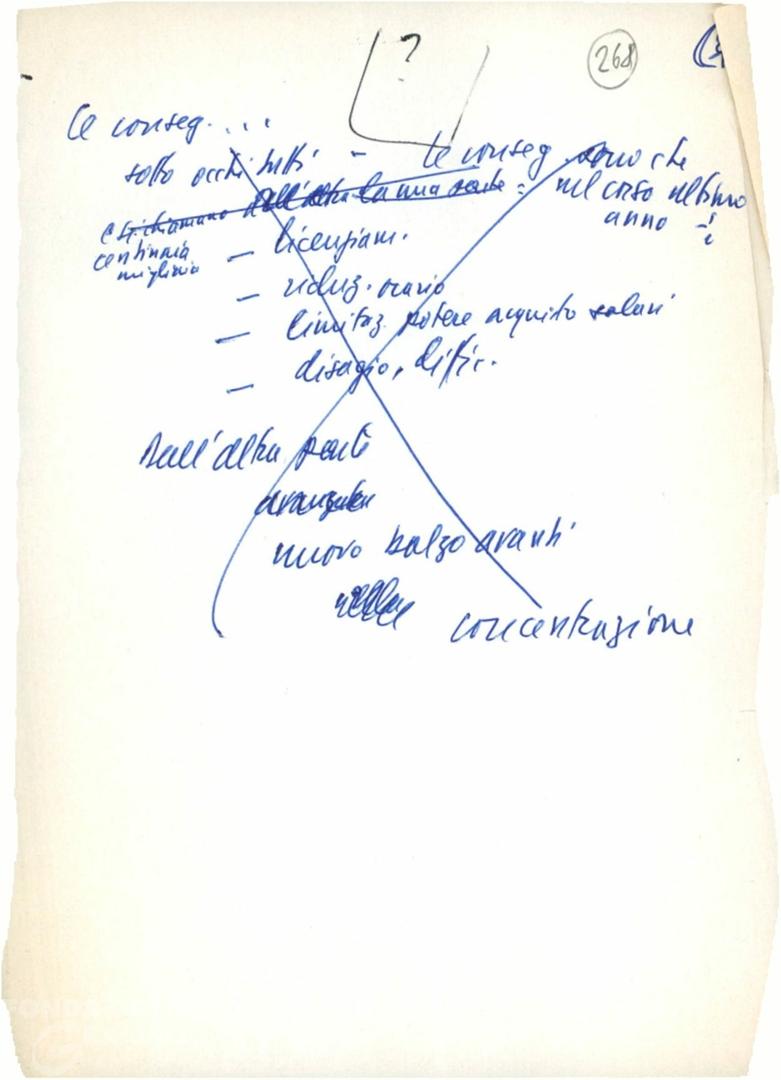 ?
268
Le conseg. ...
sotto occhi tutti - Le conseg. sono che
e si chiamano dall'altra la una parte : nel corso ultimo
centinaia anno
migliaia
- licenziam.
- riduz. orario
- limitaz. potere acquisto salari
- disagio, diffic.
Dall'altra parte
nuovo balzo avanti
concentrazione